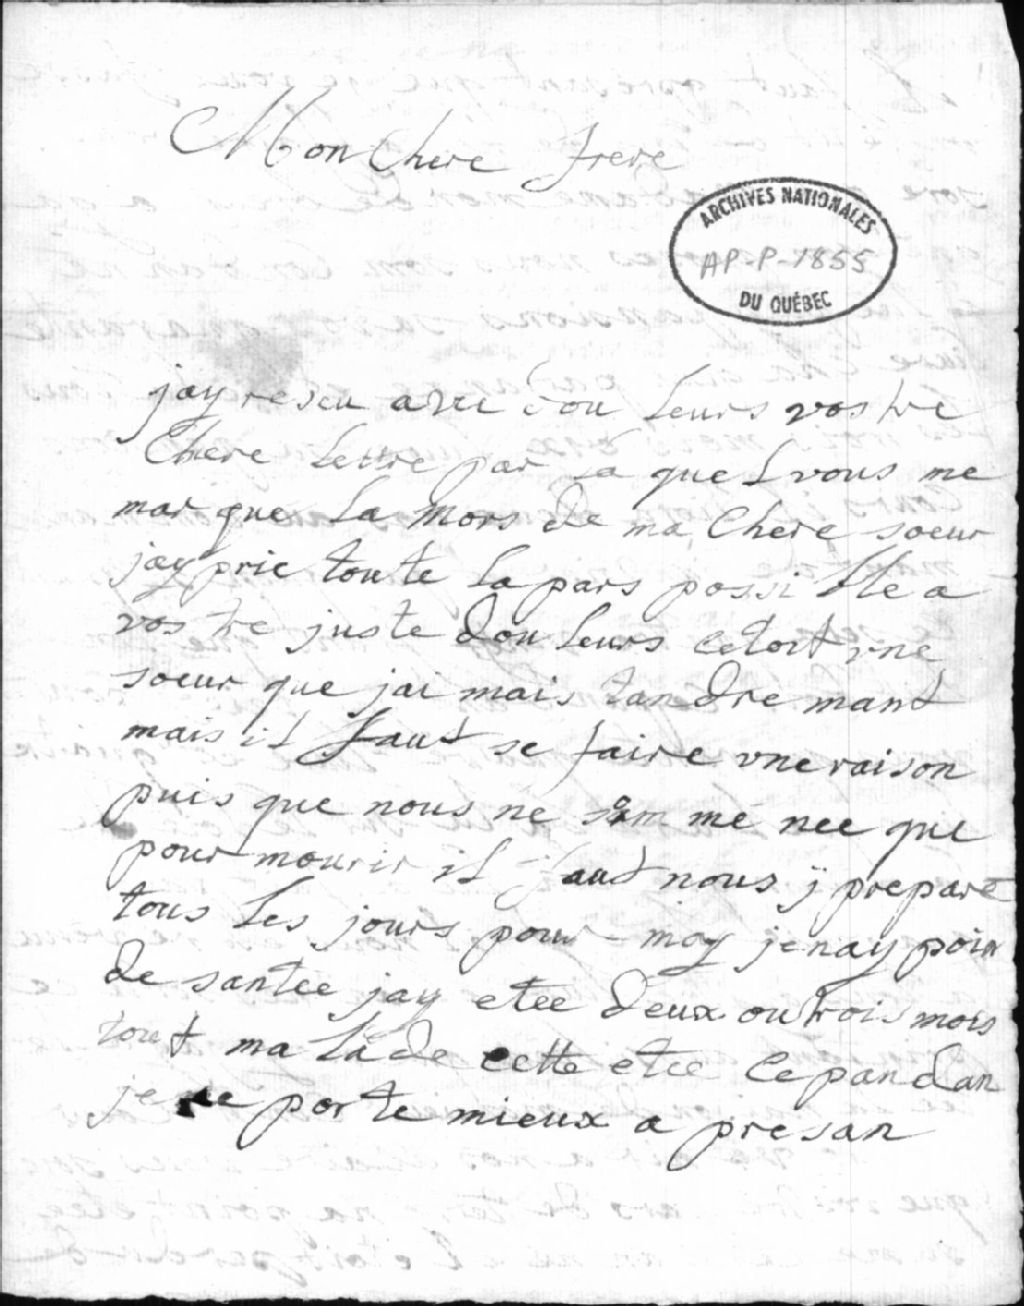 Mon Chere frere
ARCHIVES NATIONALES
AP-P-1855
DU QUÉBEC
jay reseu avec dou leurs vostre
Chere Lettre par la que L vous me
mar que La mors de ma Chere soeur
jay prie toute la pars possi ble a
vostre juste dou leurs cetoit vne
soeur que jai mais tandre mant
mais il faut se faire vne raison
puis que nous ne som me nee que
pour mourir il faut nous ÿ prepare
tous les jours pour moy je nay poin
de santee jay etee deux ou trois mois
tout ma lade cette etee Ce pan dan
je me porte mieux a presan